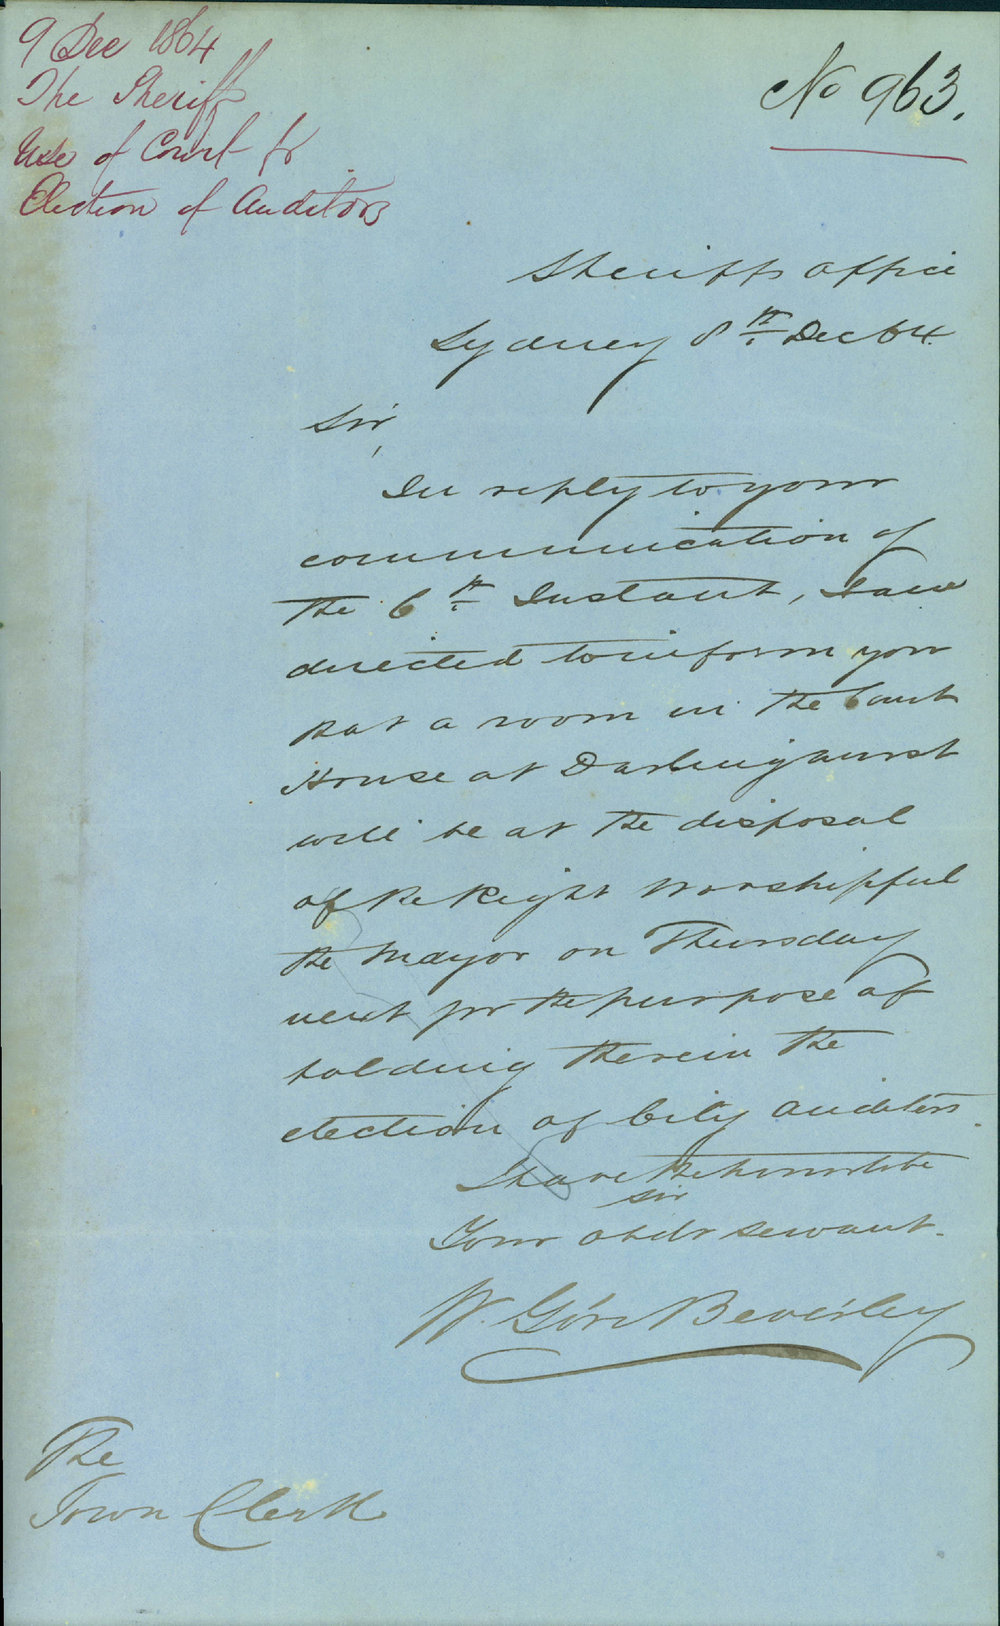 9 Dec 1864
The Sheriff
Use of Court for
Election of Auditors
No 963.
Sheriffs office
Sydney 8th Dec 64.
Sir,
In reply to your
communication of
the 6th Instant, I am
directed to inform you
that a room in the Court
House at Darlinghurst
will be at the disposal
of the Right Worshipful
the Mayor on Thursday
next for the purpose of
holding therein the
election of City Auditors.
I have the honor to be
Sir
Your obdt servant.
W. Gore Beverley
The
Town Clerk